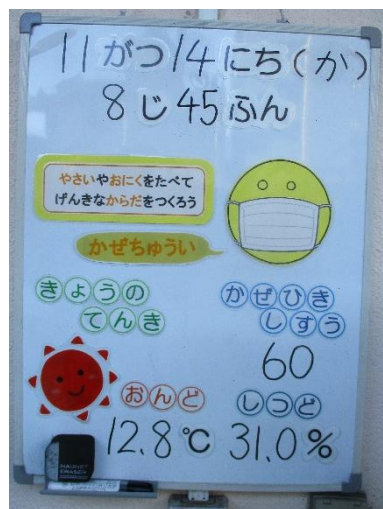 11がつ14にち(か)
8じ45ふん
やさいやおにくをたべて
げんきなからだをつくろう
かぜちゅうい
きょうの
てんき
かぜひき
しすう
60
おんど
12.8℃
しつど
31.0%